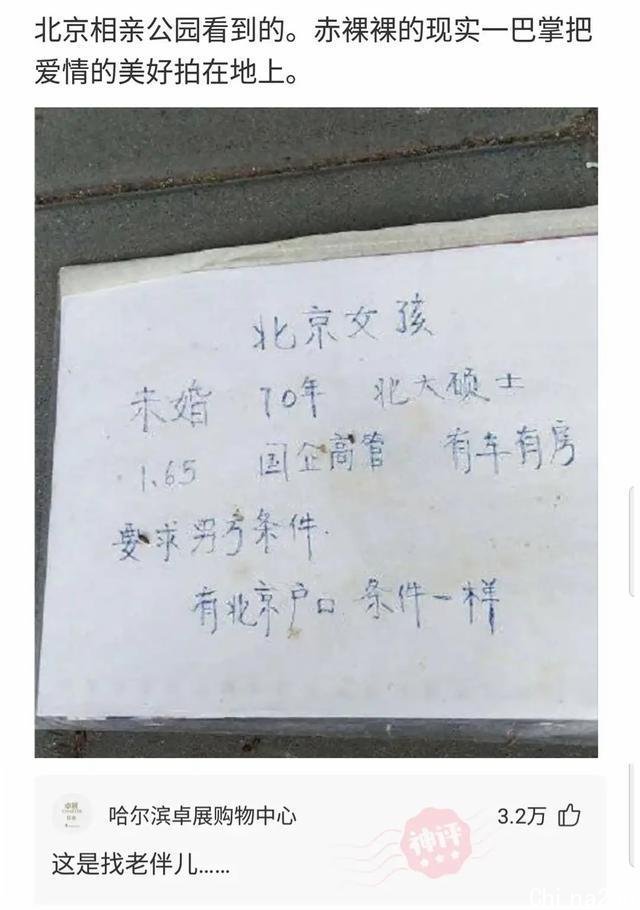 北京相亲公园看到的。赤裸裸的现实一巴掌把
爱情的美好拍在地上。
北京女孩
未婚 70年 北大硕士
1.65 国企高管 有车有房
要求男方条件.
有北京户口 条件一样
哈尔滨卓展购物中心 3.2万
神评
这是找老伴儿......